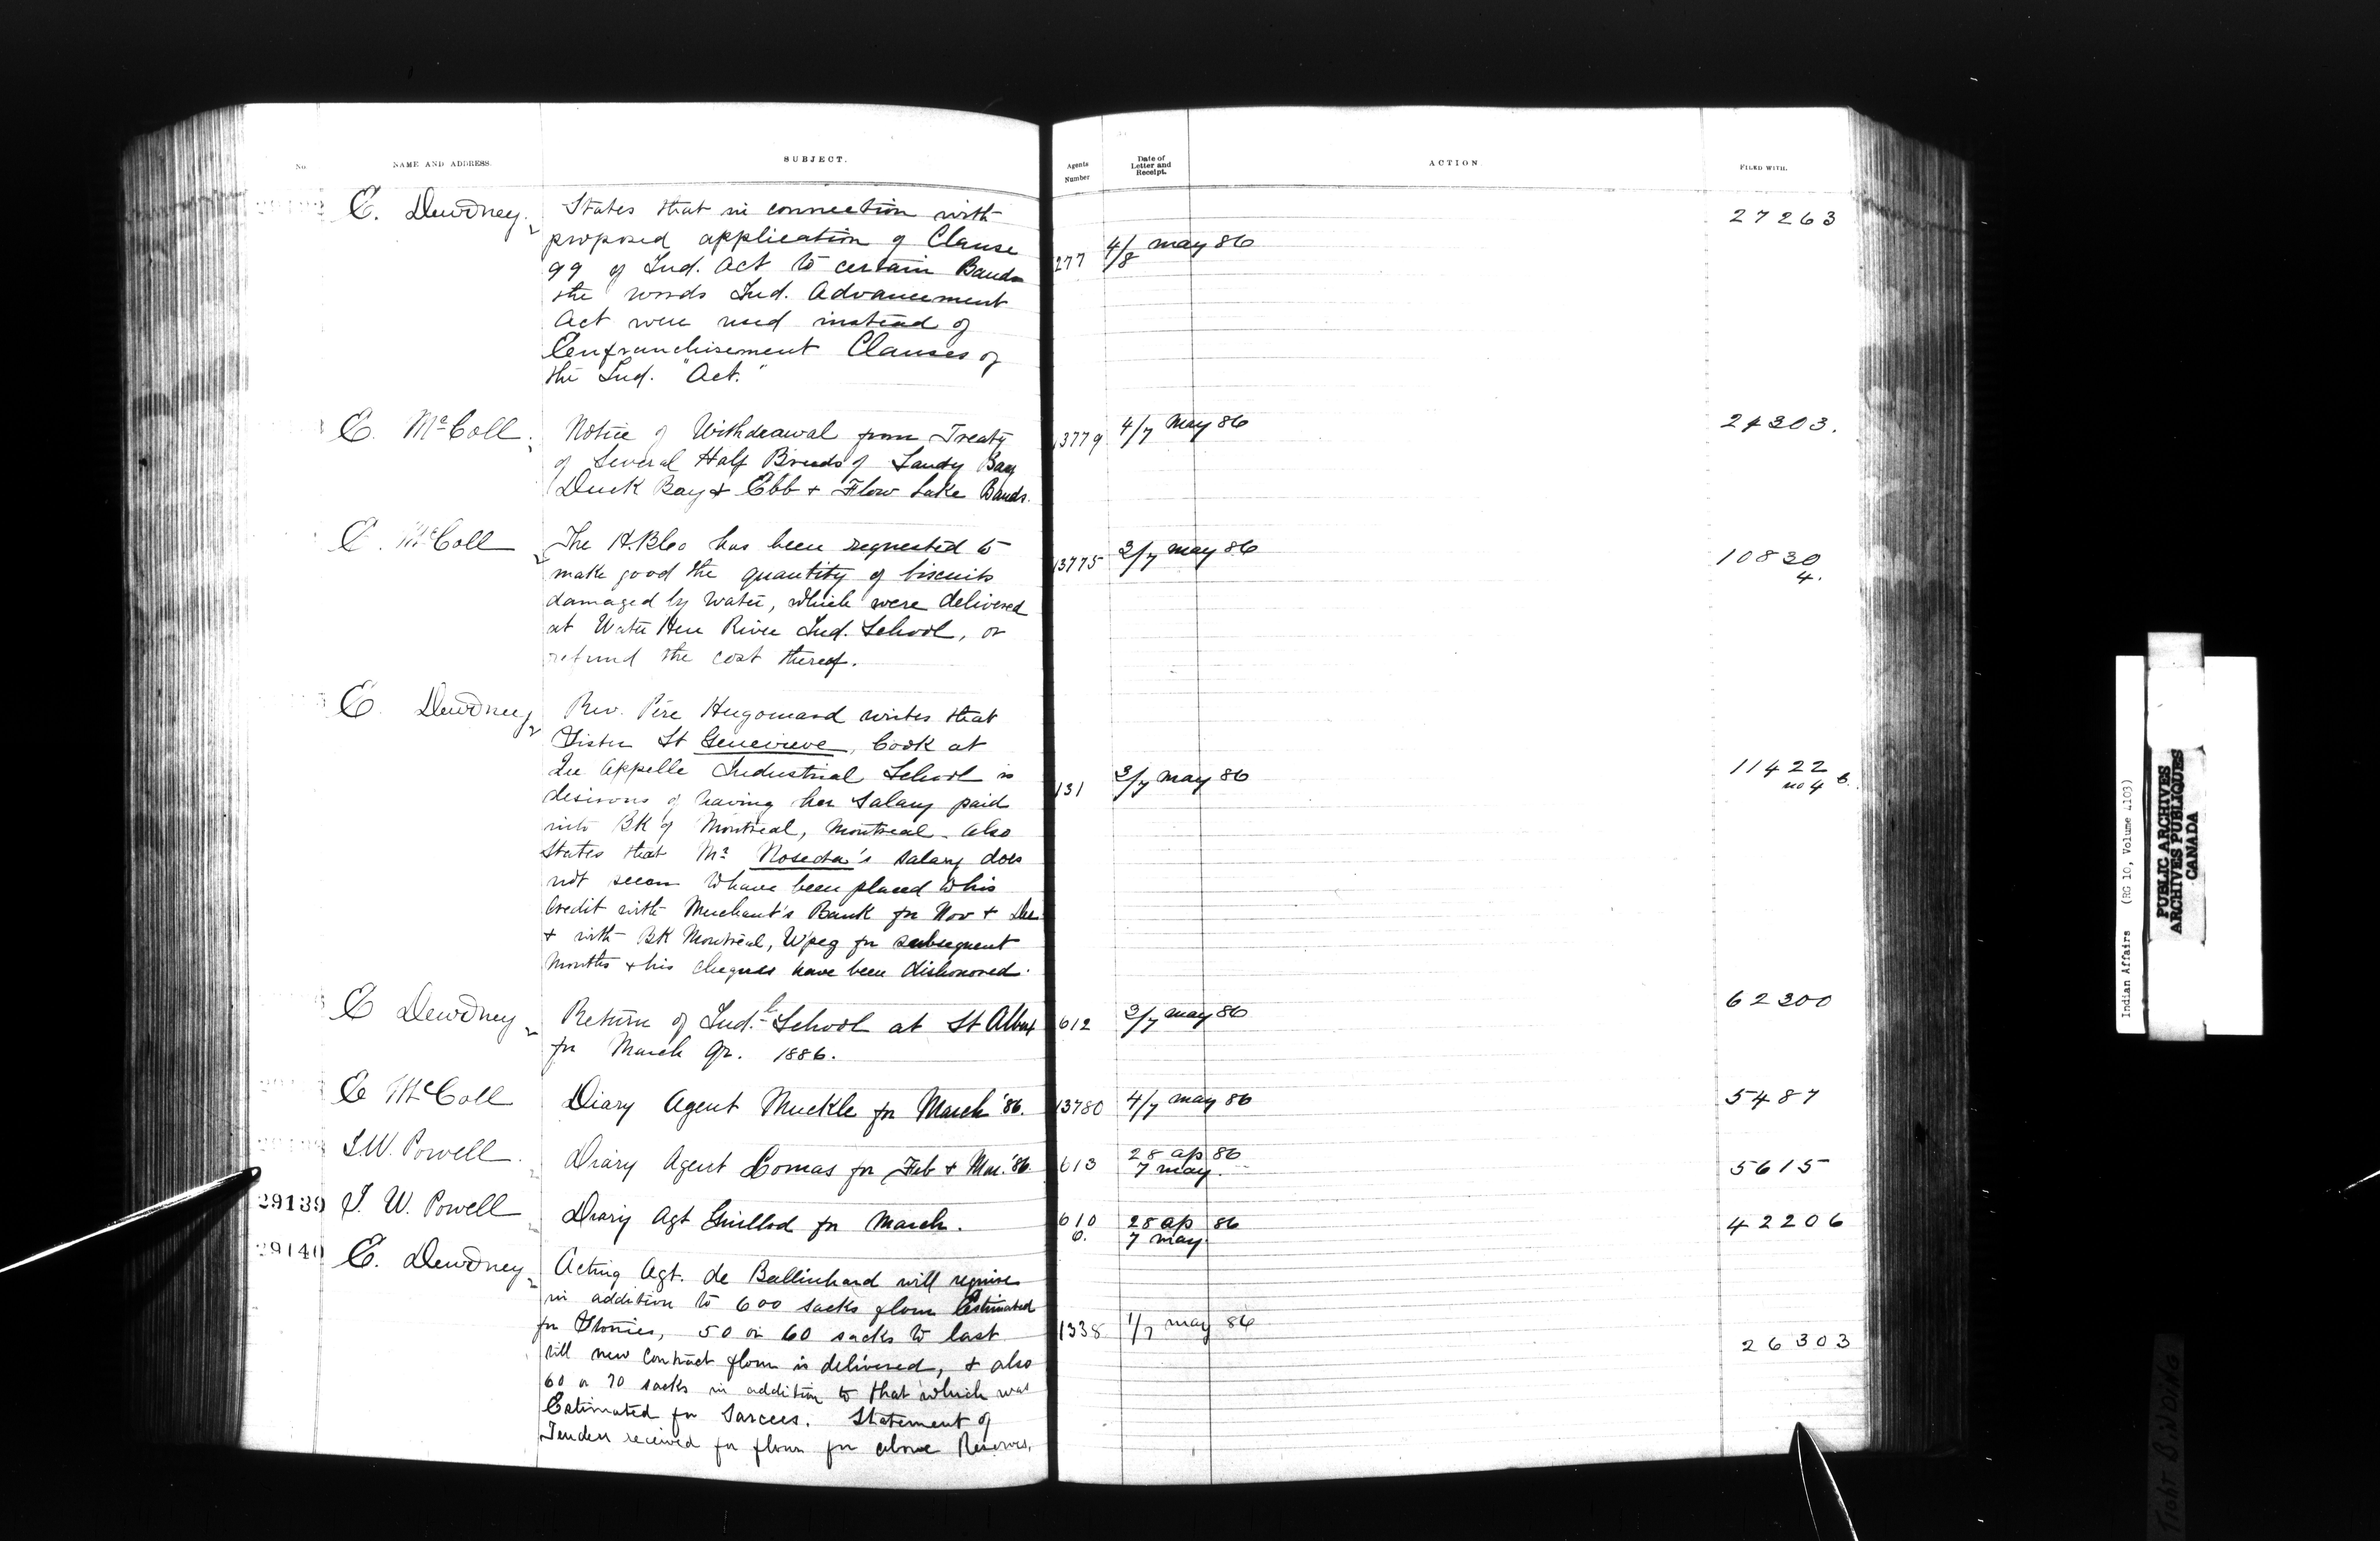 No. NAME AND ADDRESS. SUBJECT. Agents Number Date of Letter and Receipt. ACTION FILED WITH.
E. Dewdney. States that in connection with 27263
proposed application of Clause 277 4/8 may 86
99 of Ind. Act to certain Bands
the words Ind. Advancement
Act were used instead of
Enfranchisement Clauses of
the Ind. "Act."
E. McColl. Notice of Withdrawal from Treaty 13779 4/7 May 86
of Several Half Breeds of Sandy Bay
Duck Bay & Ebb & Flow Lake Bands.
E. McColl The H.B.Co has been requested to 13775 3/7 may 86 10830
make good the quantity of biscuits 4.
damaged by water, which were delivered
at Water Hen River Ind. School, or
refund the cost thereof.
E. Dewdney Rev. Père Hugonard writes that
Sister St Genevieve, Cook at
Qu Appelle Industrial School is 131 3/7 may 86 11422
desirous of having her Salary paid no 4
into BK of Montreal, Montreal. Also
States that Mr Noseda's salary does
not seem to have been placed to his
Credit with Merchant's Bank for Nov & Dec
& with BK Montreal, W'peg for subsequent
Months & his cheques have been dishonored.
E Dewdney Return of Ind.l School at St Albert 612 3/7 may 86 62300
for March Qr. 1886.
E McColl Diary Agent Muckle for March '86. 13780 4/7 may 86 5487
I.W. Powell Diary Agent Lomas for Feb & Mar. '86 613 28 ap 86 5615
7 may.
29139 I. W. Powell Diary Agt Guillod for March. 610 28 ap 86 42206
6. 7 may.
29140 E. Dewdney Acting Agt. de Balinhard will require
in addition to 600 sacks flour Estimated
for Stonies, 50 or 60 sacks to last 1338 1/7 may 86 26303
till new Contract flour is delivered, & also
60 or 70 sacks in addition to that which was
Estimated for Sarcees. Statement of
Tenders received for flour for above Reserves.
Indian Affairs (RG 10, Volume 4103)
PUBLIC ARCHIVES
ARCHIVES PUBLIQUES
CANADA
TIGHT BINDING